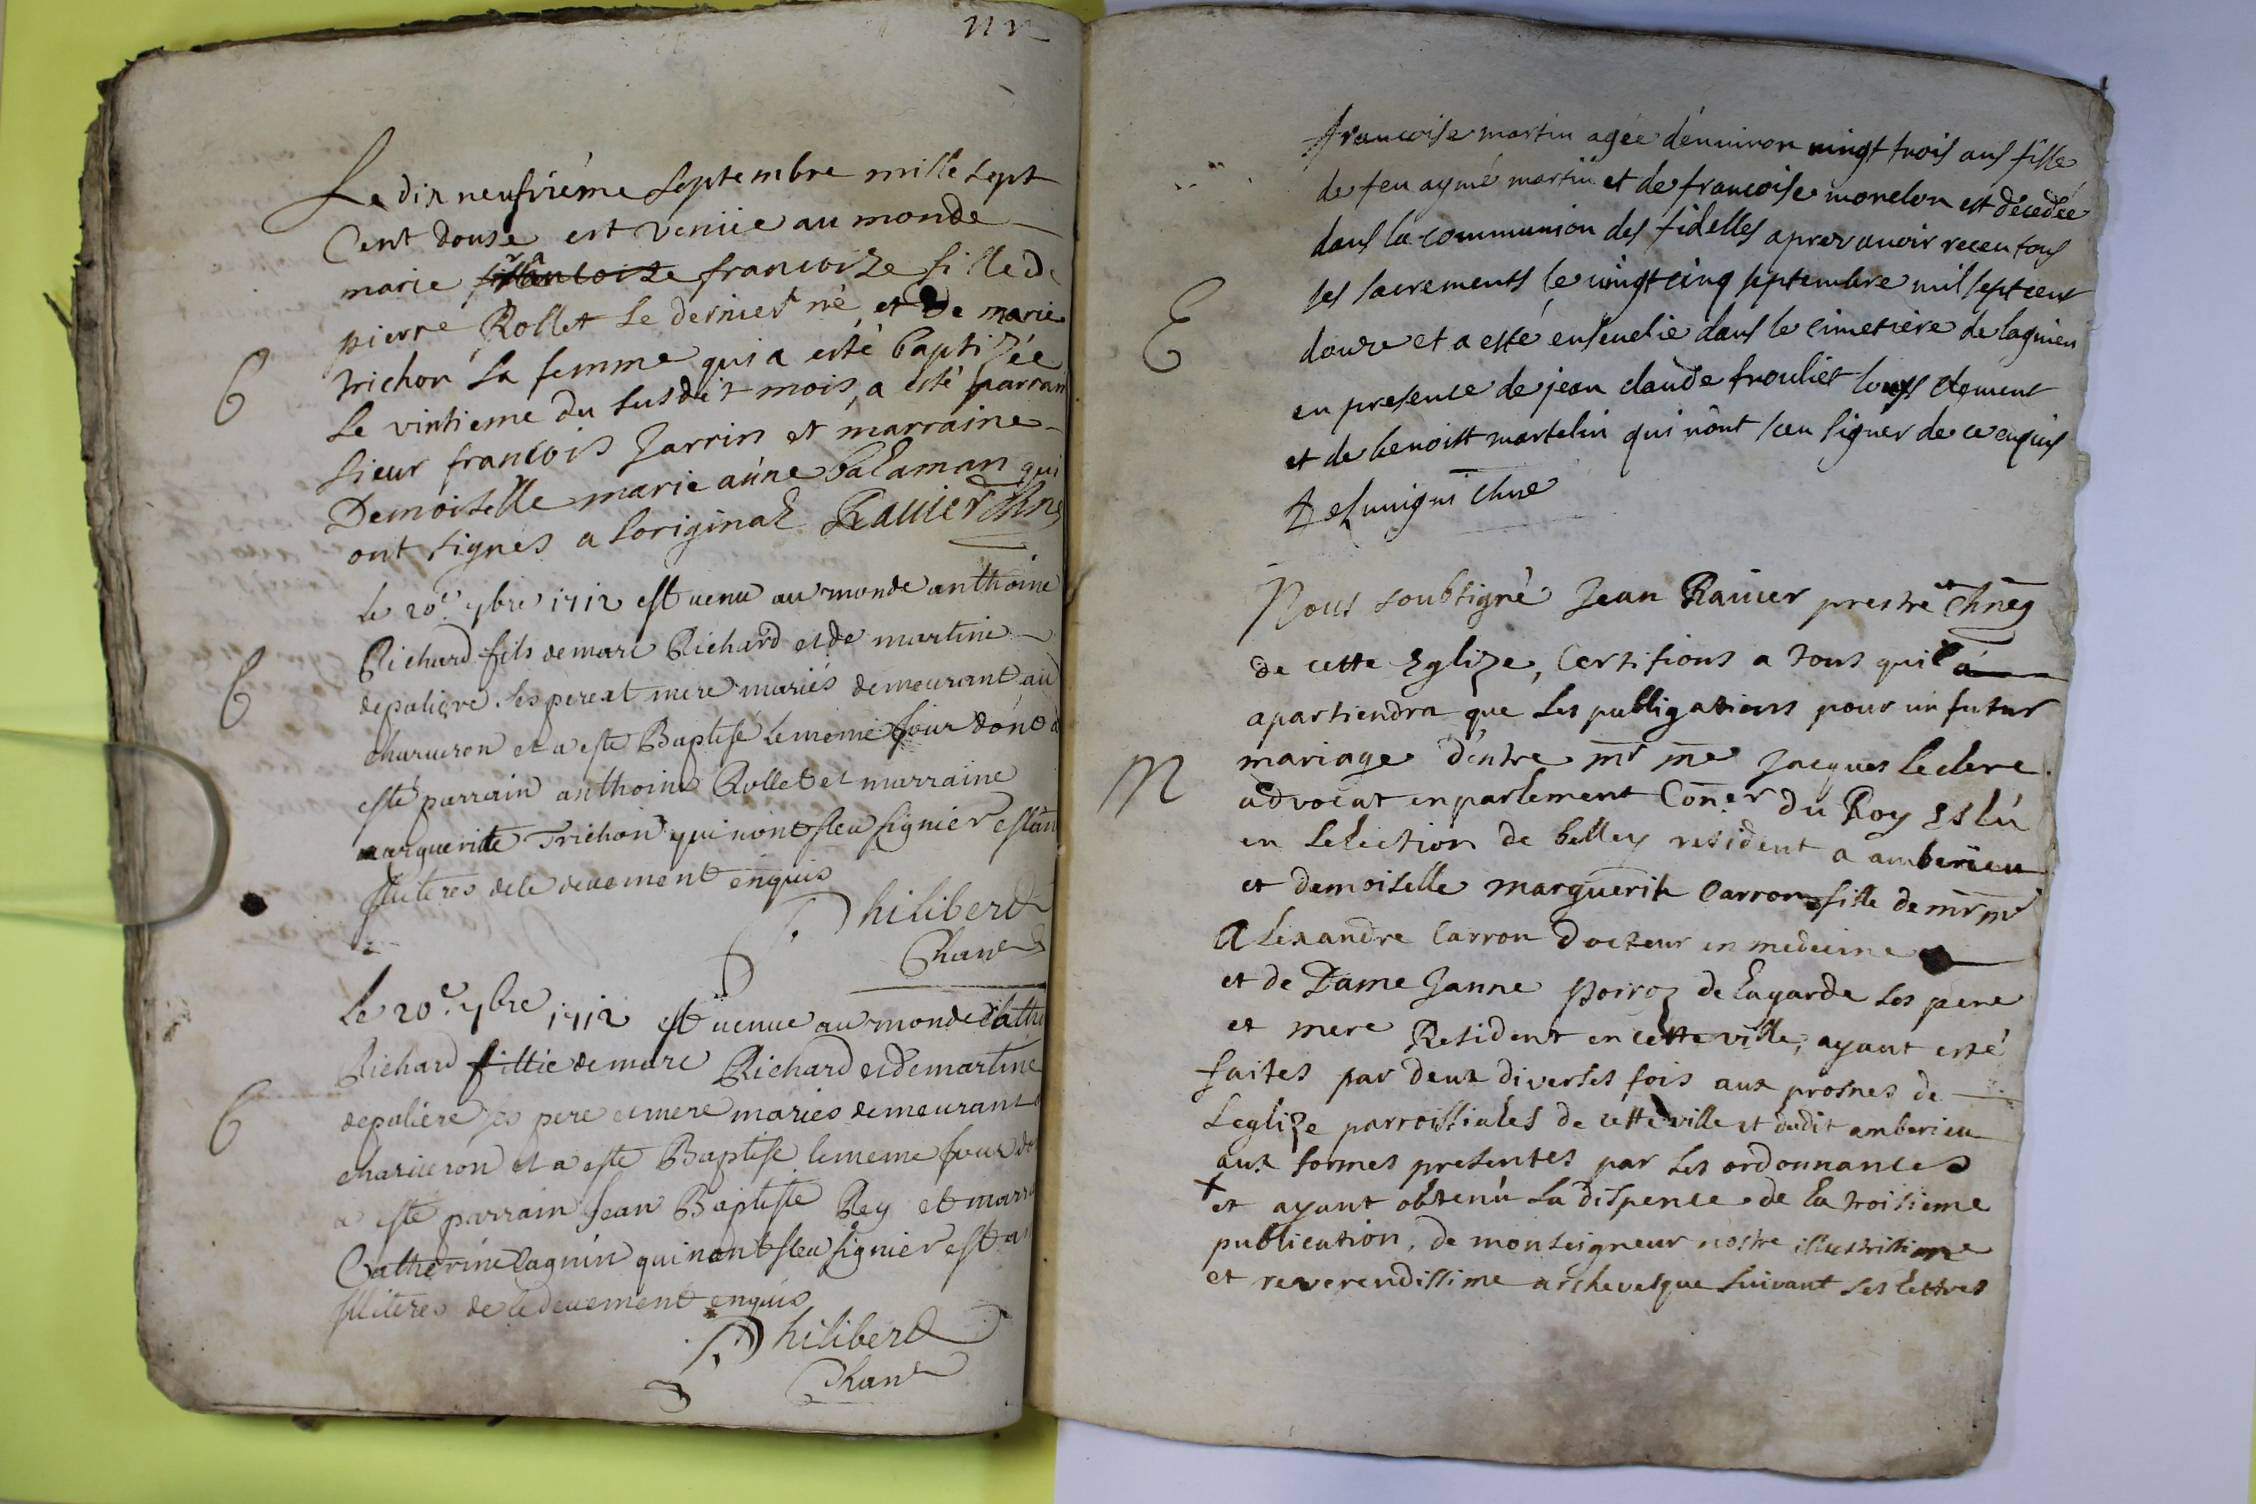 Le dix neufvième septembre mille sept
Cent douse est venüe au monde
marie francoize francoize fille de
pierre Rollet le dernier né et de marie
trichon sa femme qui a esté baptizée
le vintieme du susdit mois, a esté parrain
sieur francois Jarrin et marraine
Demoiselle marie anne balaman qui
ont signés a loriginal Rauier Chne
B
le 20e 7bre 1712 est uenu au monde anthoine
Richard fils de marc Richard et de martine
depaliere ses pere et mere mariés demeurant au
charueron et a este Baptisé le meme jour dont a
esté parrain anthoine Rollet et marraine
marguerite Trichon qui nont sceu signier estan
illiteres de le deuement enquis
Philiberd
Chane
B
Le 20e 7bre 1712 est uenue au monde Cathe
Richard fillie de marc Richard et de martine
depaliere ses pere et mere mariés demeurant
charueron et a este Baptise le meme jour do
a esté parrain Jean Baptiste Rey et marra
Catherine Lagnin qui nont sceu signier estan
illiteres de le deuement enquis
Philiberd
Chane
B
francoise martin agée d'enuiron uingt trois ans fille
de feu aymé martin et de francoise morelon est décedée
dans la communion des fidelles aprez auoir receu tous
les sacrements le uingt cinq septembre mil sept cent
douze et a esté enseuelie dans le cimetiére de lagnieu
en presence de jean claude frouliet louys clement
et de benoist martelin qui n'ont sceu signer de ce enquis
Chne
E
Nous soubsigné Jean Rauier prestre et Chne
de cette Eglize, Certifions a tous quil a
apartiendra que les publigations pour un futur
mariage d'entre mr me Jacques leclerc
advocat en parlement Coner du Roy Eslú
en Lelection de belley resident a amberieu
et demoiselle marguerite Carron fille de mr me
Alexandre Carron docteur en medecine
et de Dame Janne poiroz de lagarde ses pere
et mere Resident en cette ville, ayant esté
faites par deux diverses fois aux prosnes de
Leglize parroissiales de cette ville et dudit amberieu
aux formes presentes par les ordonnances
et ayant obtenu la dispence de la troisieme
publication, de monseigneur nostre illustrissime
et reverendissime archevesque suivant ses lettres
M